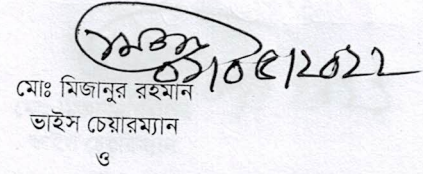 ০১/০৫/২০২২
মোঃ মিজানুর রহমান
ভাইস চেয়ারম্যান
ও